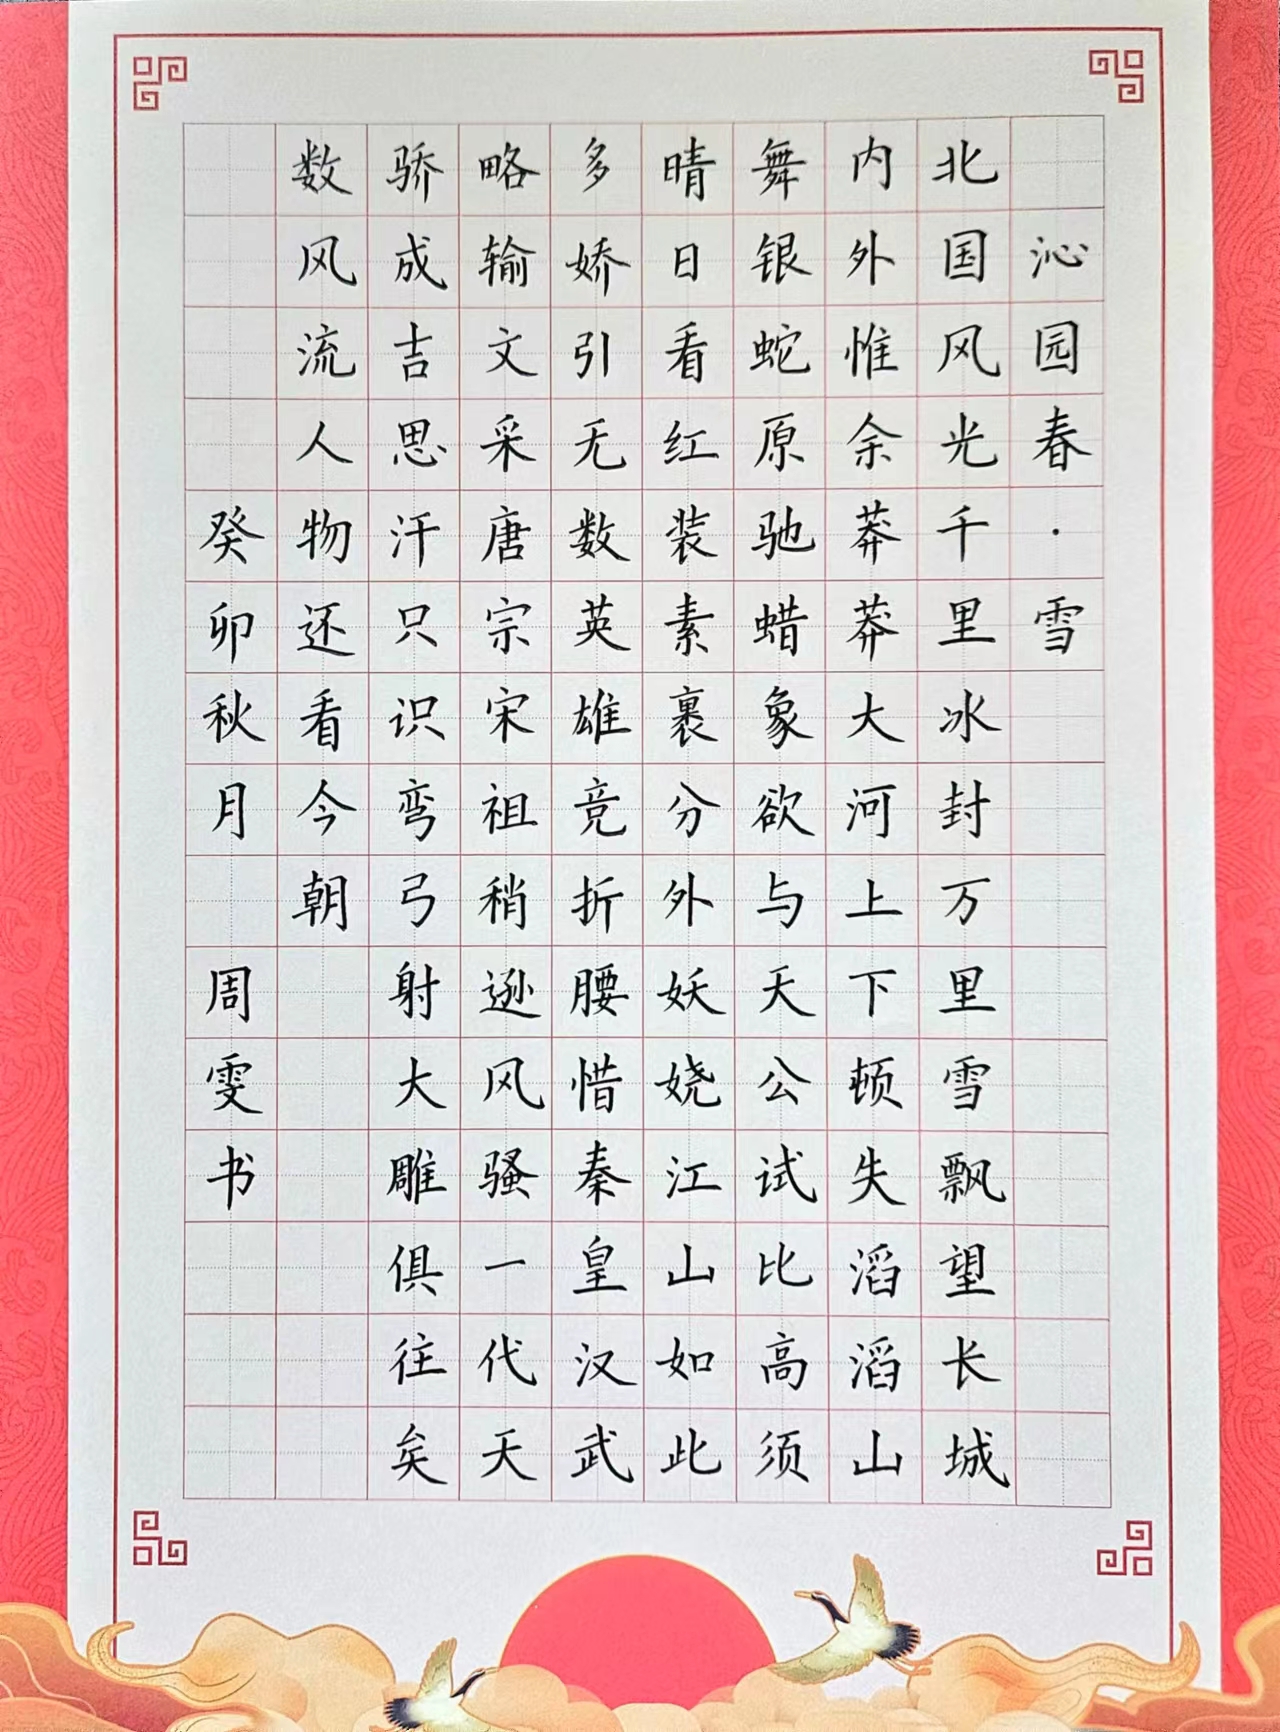 沁园春·雪
北国风光千里冰封万里雪飘望长城
内外惟余莽莽大河上下顿失滔滔山
舞银蛇原驰蜡象欲与天公试比高须
晴日看红装素裹分外妖娆江山如此
多娇引无数英雄竞折腰惜秦皇汉武
略输文采唐宗宋祖稍逊风骚一代天
骄成吉思汗只识弯弓射大雕俱往矣
数风流人物还看今朝
癸卯秋月 周雯书